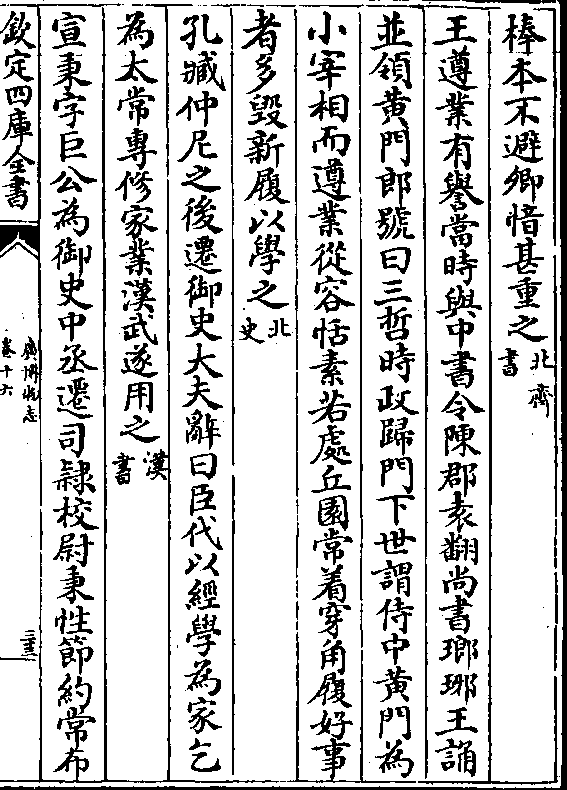 棒本不避卿愔甚重之北齊書
王遵業有譽當時與中書令陳郡袁翻尚書瑯琊王誦
並領黄門郎號曰三哲時政歸門下世謂侍中黄門為
小宰相而遵業從容恬素若處丘園常着穿角履好事
者多毁新履以學之北史
孔臧仲尼之後遷御史大夫辭曰臣代以經學為家乞
為太常專修家業漢武遂用之漢書
宣秉字巨公為御史中丞遷司隸校尉秉性節約常布
欽定四庫全書
廣博物志
卷十六